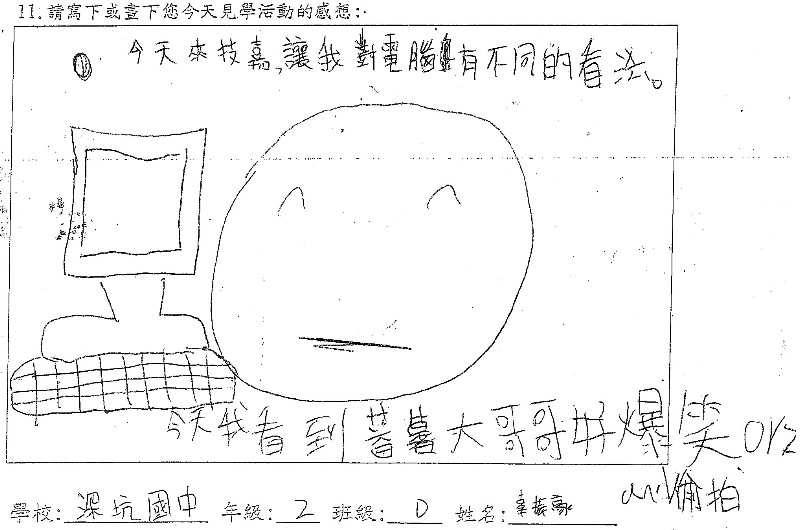 11.請寫下或畫下您今天見學活動的感想:
今天來技嘉,讓我對電腦有不同的看法。
今天我看到蕃薯大哥哥好爆笑 orz
偷拍
學校:深坑國中 年級:2 班級:D 姓名: